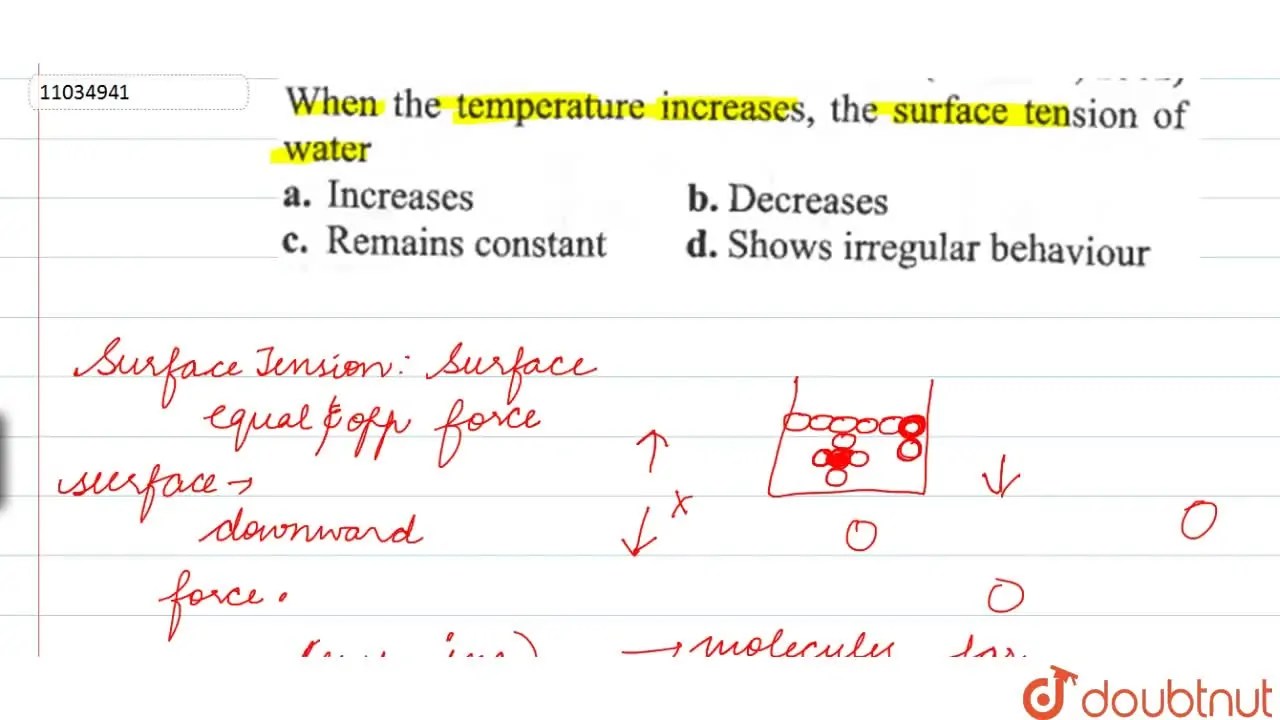 11034941
When the temperature increases, the surface tension of
water
a. Increases b. Decreases
c. Remains constant d. Shows irregular behaviour
Surface Tension: Surface
equal & opp force
surface →
downward
force.
→ molecules
doubtnut